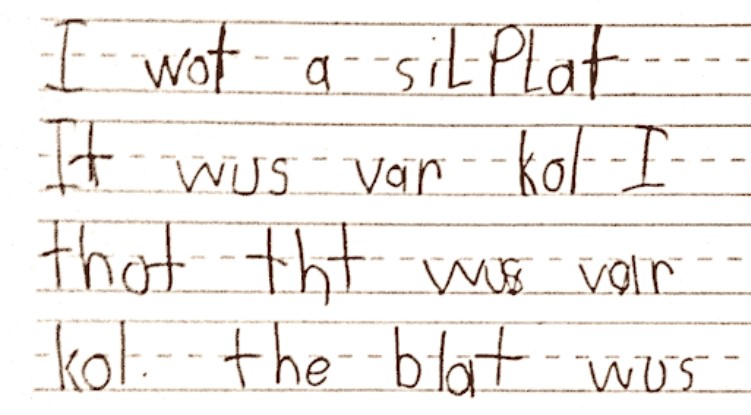 I wot a siLPLat
It wus var kol I
thot tht wus var
kol. the blat wus